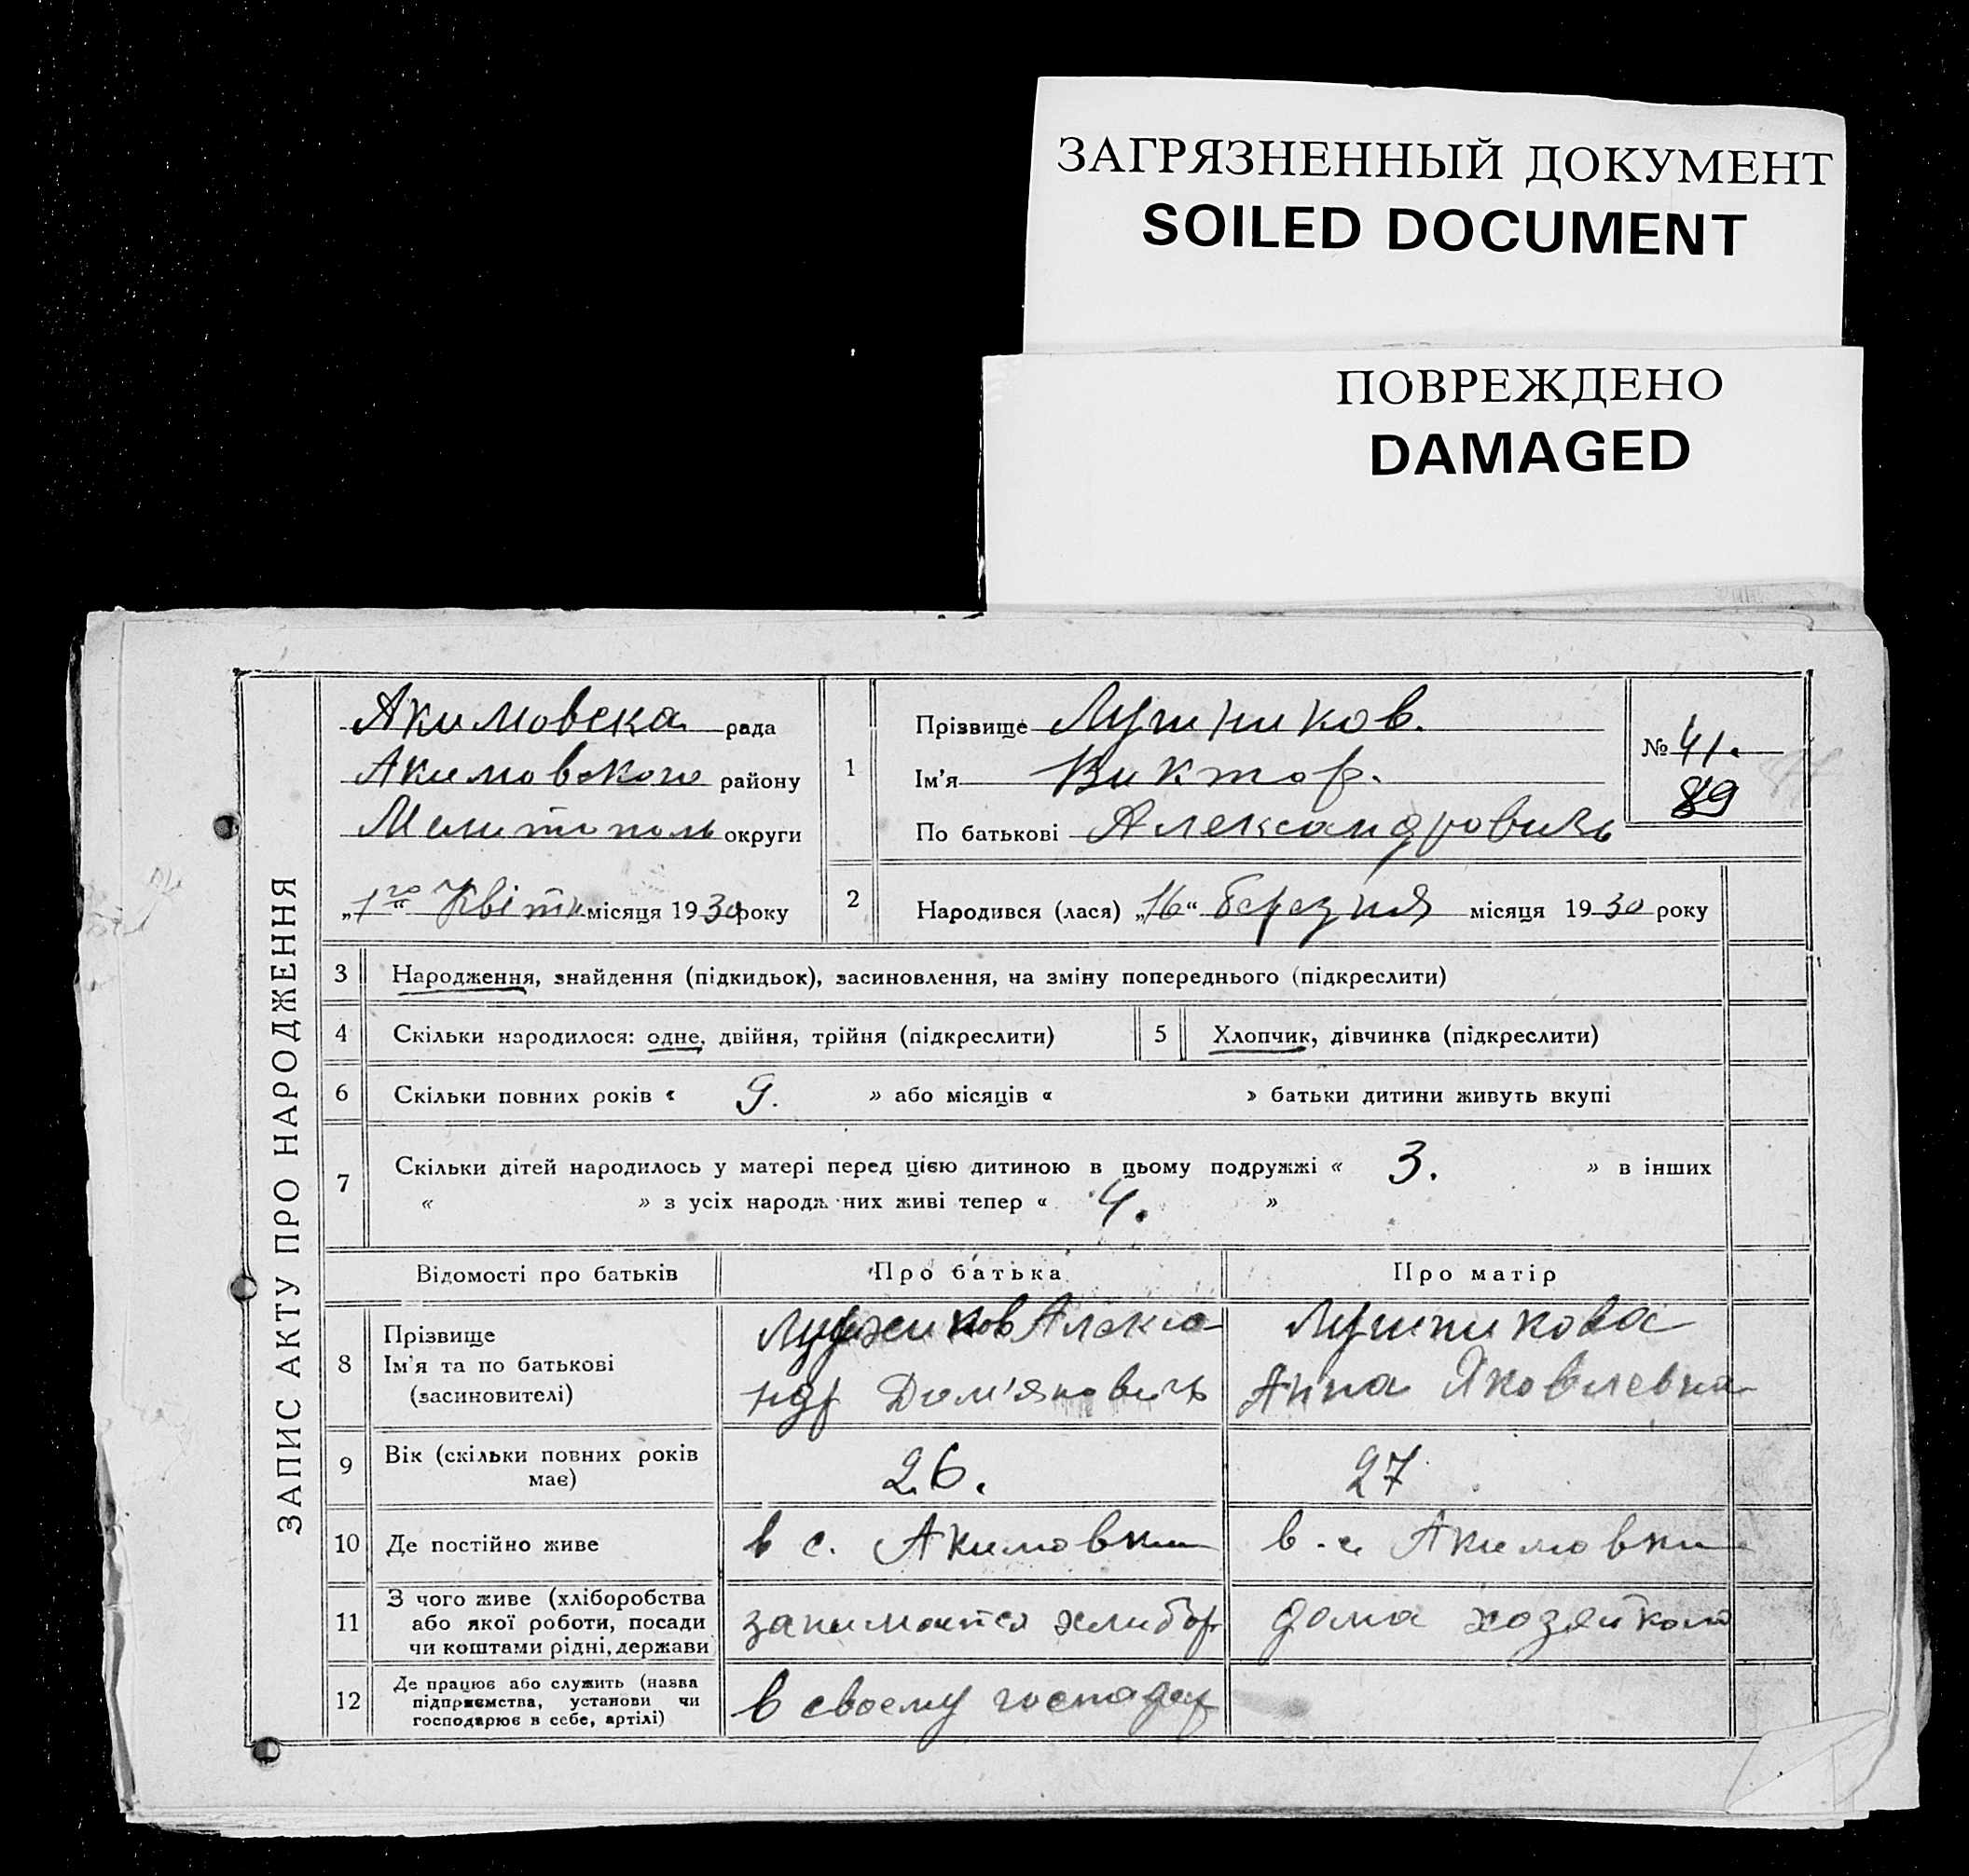 ЗАГРЯЗНЕННЫЙ ДОКУМЕНТ
SOILED DOCUMENT
ПОВРЕЖДЕНО
DAMAGED
ЗАПИС АКТУ ПРО НАРОДЖЕННЯ
Акимовска рада
Акимовского району
Мелитополь округи
„1го“ Квітн місяця 1930 року
1
Прізвище Лушников.
Ім'я Виктор.
По батькові Александровичь
№ 41.
89
2 Народився (лася) „16“ березня місяця 1930 року
3 Народження, знайдення (підкидьок), засиновлення, на зміну попереднього (підкреслити)
4 Скільки народилося: одне, двійня, трійня (підкреслити) 5 Хлопчик, дівчинка (підкреслити)
6 Скільки повних років « 9. » або місяців « » батьки дитини живуть вкупі
7 Скільки дітей народилось у матері перед цією дитиною в цьому подружжі « 3. » в інших
« » з усіх народж них живі тепер « 4. »
Відомості про батьків Про батька Про матір
8 Прізвище
Ім'я та по батькові
(засиновителі)
Лушников Алекса-
ндр Дем'яновичь
Лушникова
Анна Яковлевна
9 Вік (скільки повних років
має)
26. 27
10 Де постійно живе в с. Акимовки в с. Акимовки
11 З чого живе (хліборобства
або якої роботи, посади
чи коштами рідні, держави
занимается хлибор дома хозяйкой
12 Де працює або служить (назва
підприємства, установи чи
господарює в себе, артілі)
в своему господар